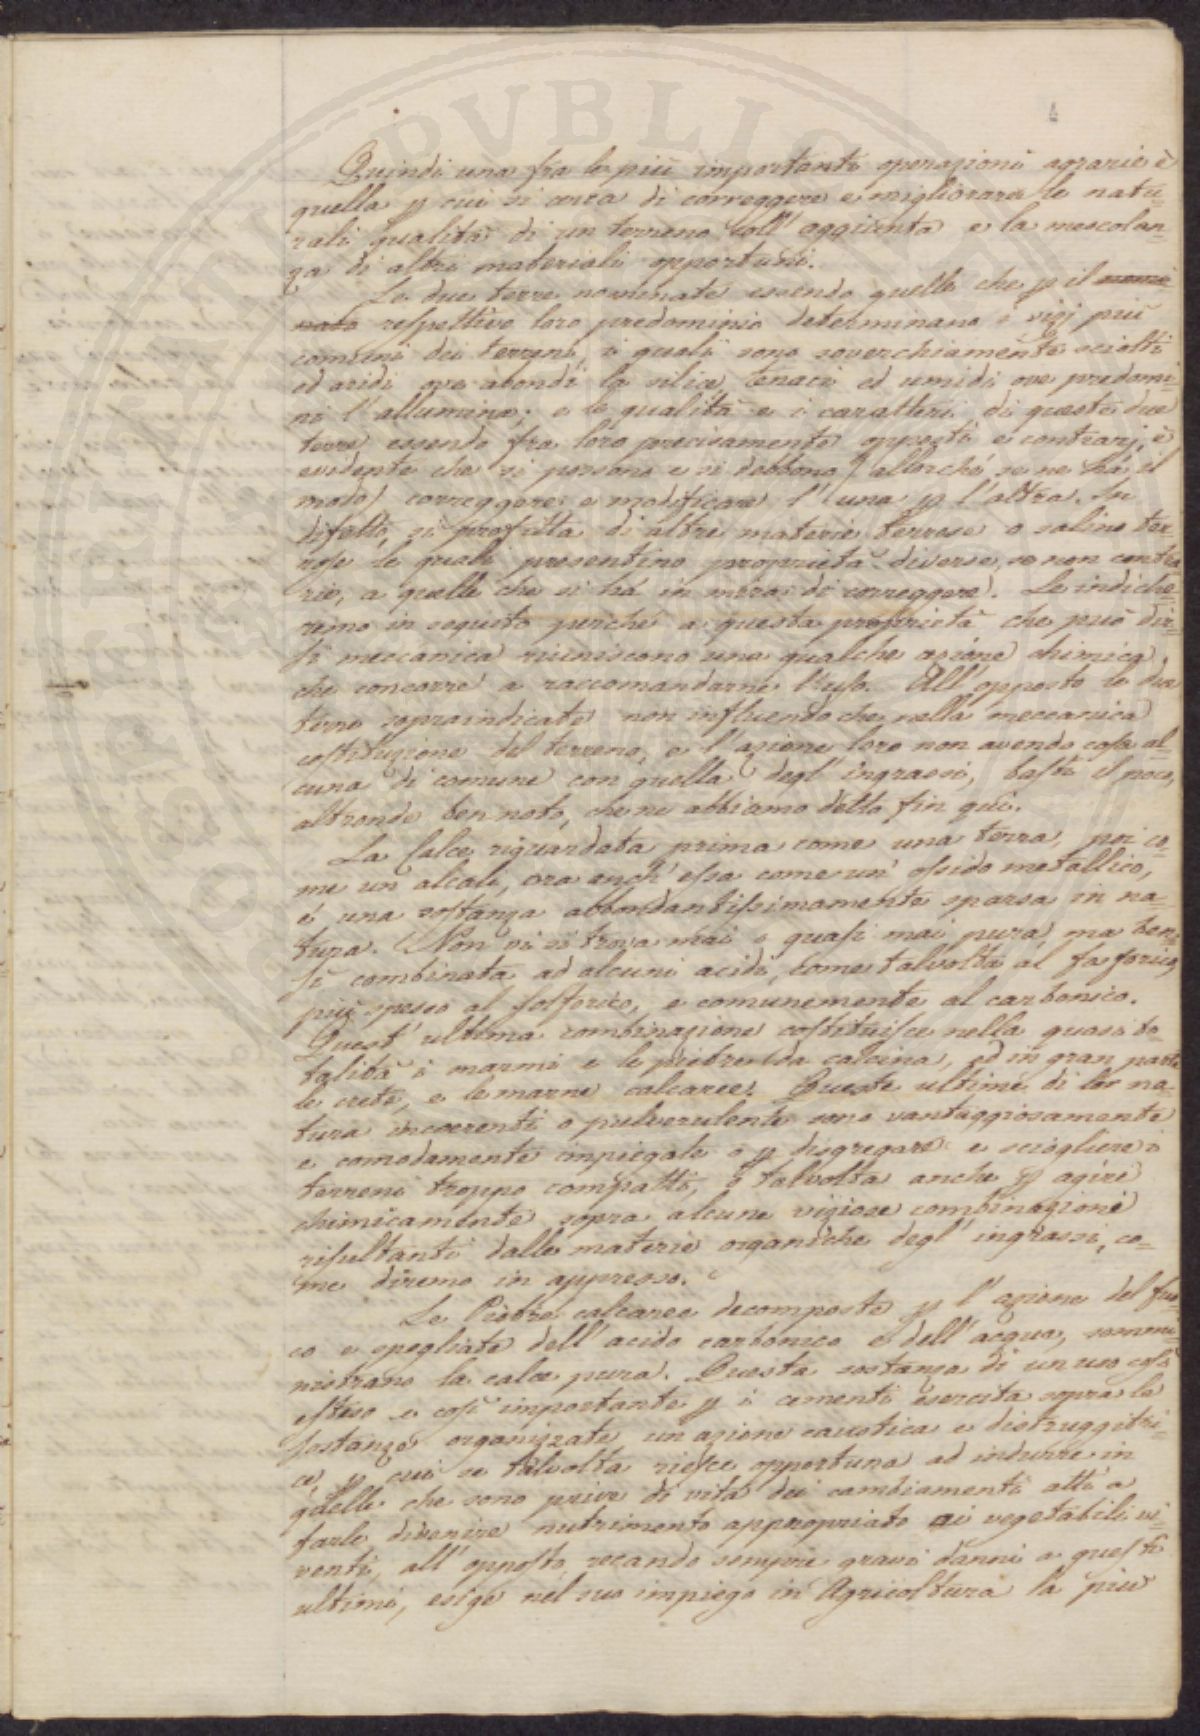 Quindi una fra le più importanti operazioni agrarie è
quella p cui si cerca di correggere e migliorare le natu=
rali qualità di un terreno coll' aggiunta e la mescolan=
za di altri materiali opportuni.
Le due terre nominate essendo quelle che p il
respettivo loro predominio determinano i vizj più
comuni dei terreni, i quali sono soverchiamente sciolti
ed aridi ove abondi la silice, tenaci ed umidi ove predomi=
ni l'allumina; e le qualità e i caratteri di queste due
terre essendo fra loro precisamente opposti e contrarj, è
evidente che si possono e si debbono (allorché se ne hà il
modo) correggere e modificare l'una p l'altra. In
difetto, si profitta di altre materie terrose o saline ter=
rose le quali presentino proprietà diverse, se non contra
rie, a quelle che si hà in mira di correggere. Le indiche=
remo in seguito perché a questa proprietà che può dir=
si meccanica riuniscono una qualche azione chimica,
che concorre a raccomandarne l'uso. All'opposto le due
terre sopraindicate non influendo che nella meccanica
costituzione del terreno, e l'azione loro non avendo cosa al=
cuna di comune con quella degl' ingrassi, basti il poco,
altronde ben noto, che ne abbiamo detto fin quì.
La Calce riguardata prima come una terra, poi co=
me un alcali, ora anch' essa come un' ossido metallico,
é una sostanza abbondantissimamente sparsa in na=
tura. Non vi si trova mai o quasi mai pura, ma ben
sì combinata ad alcuni acidi, come talvolta al fosforico,
più spesso al solforico, e comunemente al carbonico.
Quest' ultima combinazione costituisce nella quasi to=
talità i marmi e le pietre da calcina, ed in gran parte
le crete, e le marne calcaree. Queste ultime di lor na=
tura incoerenti o pulverulente sono vantaggiosamente
e comodamente impiegate o p disgregare e sciogliere i
terreni troppo compatti, o talvolta anche p agire
chimicamente sopra alcune viziose combinazioni
risultanti dalle materie organiche degl' ingrassi, co=
me diremo in appresso.
Le Pietre calcaree decomposte p l'azione del fuo=
co e spogliate dell' acido carbonico e dell' acqua, sommi=
nistrano la calce pura. Questa sostanza di un uso così
esteso e così importante p i cementi esercita sopra le
sostanze organizzate un azione caustica e distruggitri=
ce, p cui se talvolta riesce opportuna ad indurre in
quelle che sono prive di vita dei cambiamenti atti a
farle divenire nutrimento appropriato ai vegetabili vi=
venti, all' opposto, recando sempre gravi danni a questi
ultimi, esige nel suo impiego in Agricoltura la più